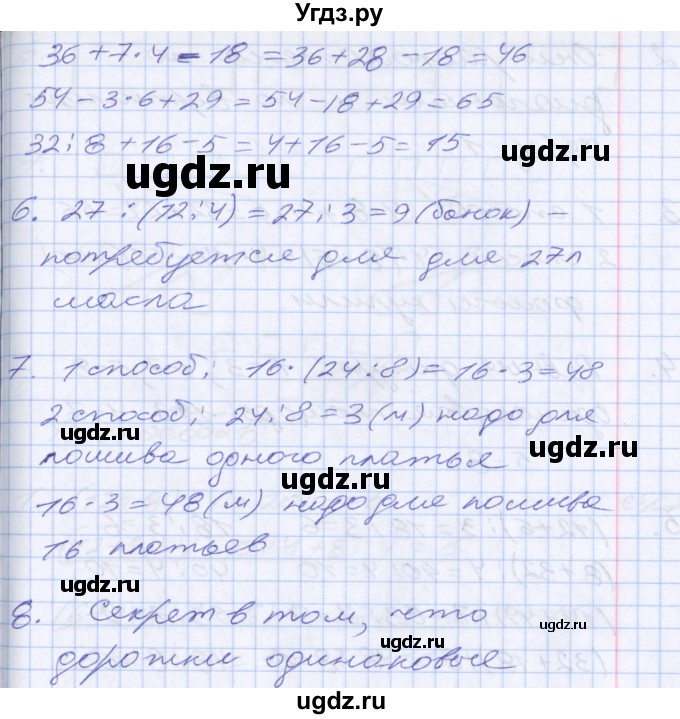 Угдз.ру
36 + 7 · 4 – 18 = 36 + 28 – 18 = 46
54 – 3 · 6 + 29 = 54 – 18 + 29 = 65
32 : 8 + 16 – 5 = 4 + 16 – 5 = 15
ugdz.ru ugdz.ru
6. 27 : (12 : 4) = 27 : 3 = 9 (банок) –
потребуется для для 27л
ugdz.ru ugdz.ru
масла
7. 1 способ: 16 · (24 : 8) = 16 · 3 = 48
2 способ: 24 : 8 = 3 (м) надо для
ugdz.ru ugdz.ru
пошива одного платья
ugdz.ru
16 · 3 = 48 (м) надо для пошива
16 платьев
ugdz.ru ugdz.ru
8. Секрет в том, что
ugdz.ru
ugdz.ru
дорожки одинаковые
ugdz.ru